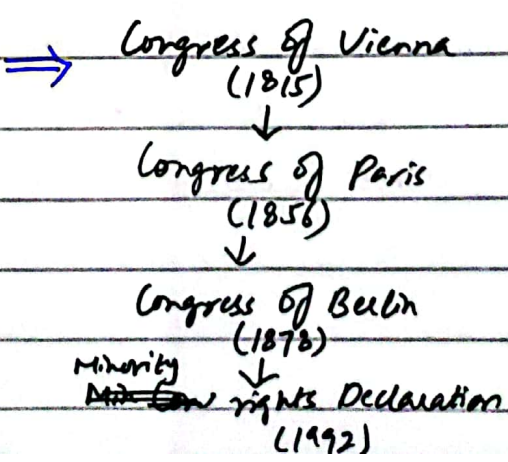 ⇒ Congress of Vienna
(1815)
↓
Congress of Paris
(1856)
↓
Congress of Berlin
(1878)
↓
Minority
rights Declaration
(1992)